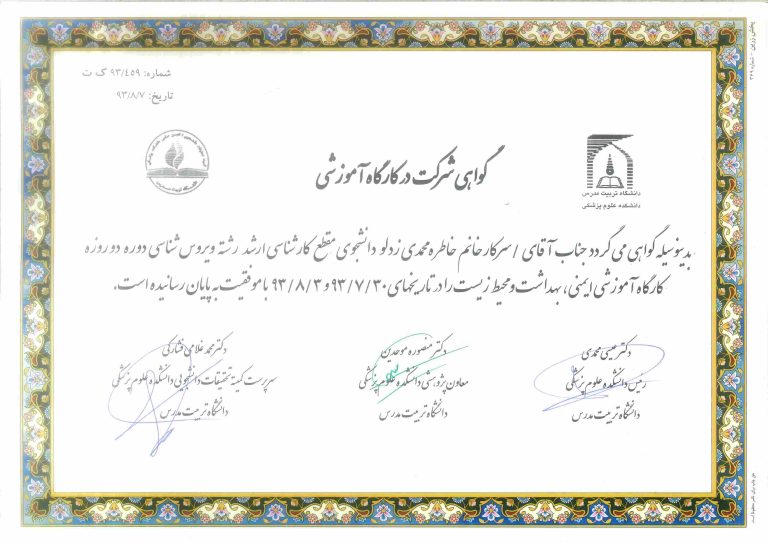 شماره: ۹۳/٤٥٩ ک ت
تاریخ: ۹۳/۸/۷
دانشگاه تربیت مدرس
دانشکده علوم پزشکی
گواهی شرکت در کارگاه آموزشی
بدینوسیله گواهی می گردد جناب آقای / سرکار خانم خاطره محمدی زدلو دانشجوی مقطع کارشناسی ارشد رشته ویروس شناسی دوره دو روزه
کارگاه آموزشی ایمنی، بهداشت و محیط زیست را در تاریخهای ۹۳/۷/۳۰ و ۹۳/۸/۳ با موفقیت به پایان رسانیده است.
دکتر عیسی محمدی
رئیس دانشکده علوم پزشکی
دانشگاه تربیت مدرس
دکتر منصوره موحدین
معاون پژوهشی دانشکده علوم پزشکی
دانشگاه تربیت مدرس
دکتر محمد غلامی فشارکی
سرپرست کمیته تحقیقات دانشجویی دانشکده علوم پزشکی
دانشگاه تربیت مدرس
پخش زرین - شماره ۳۶۹